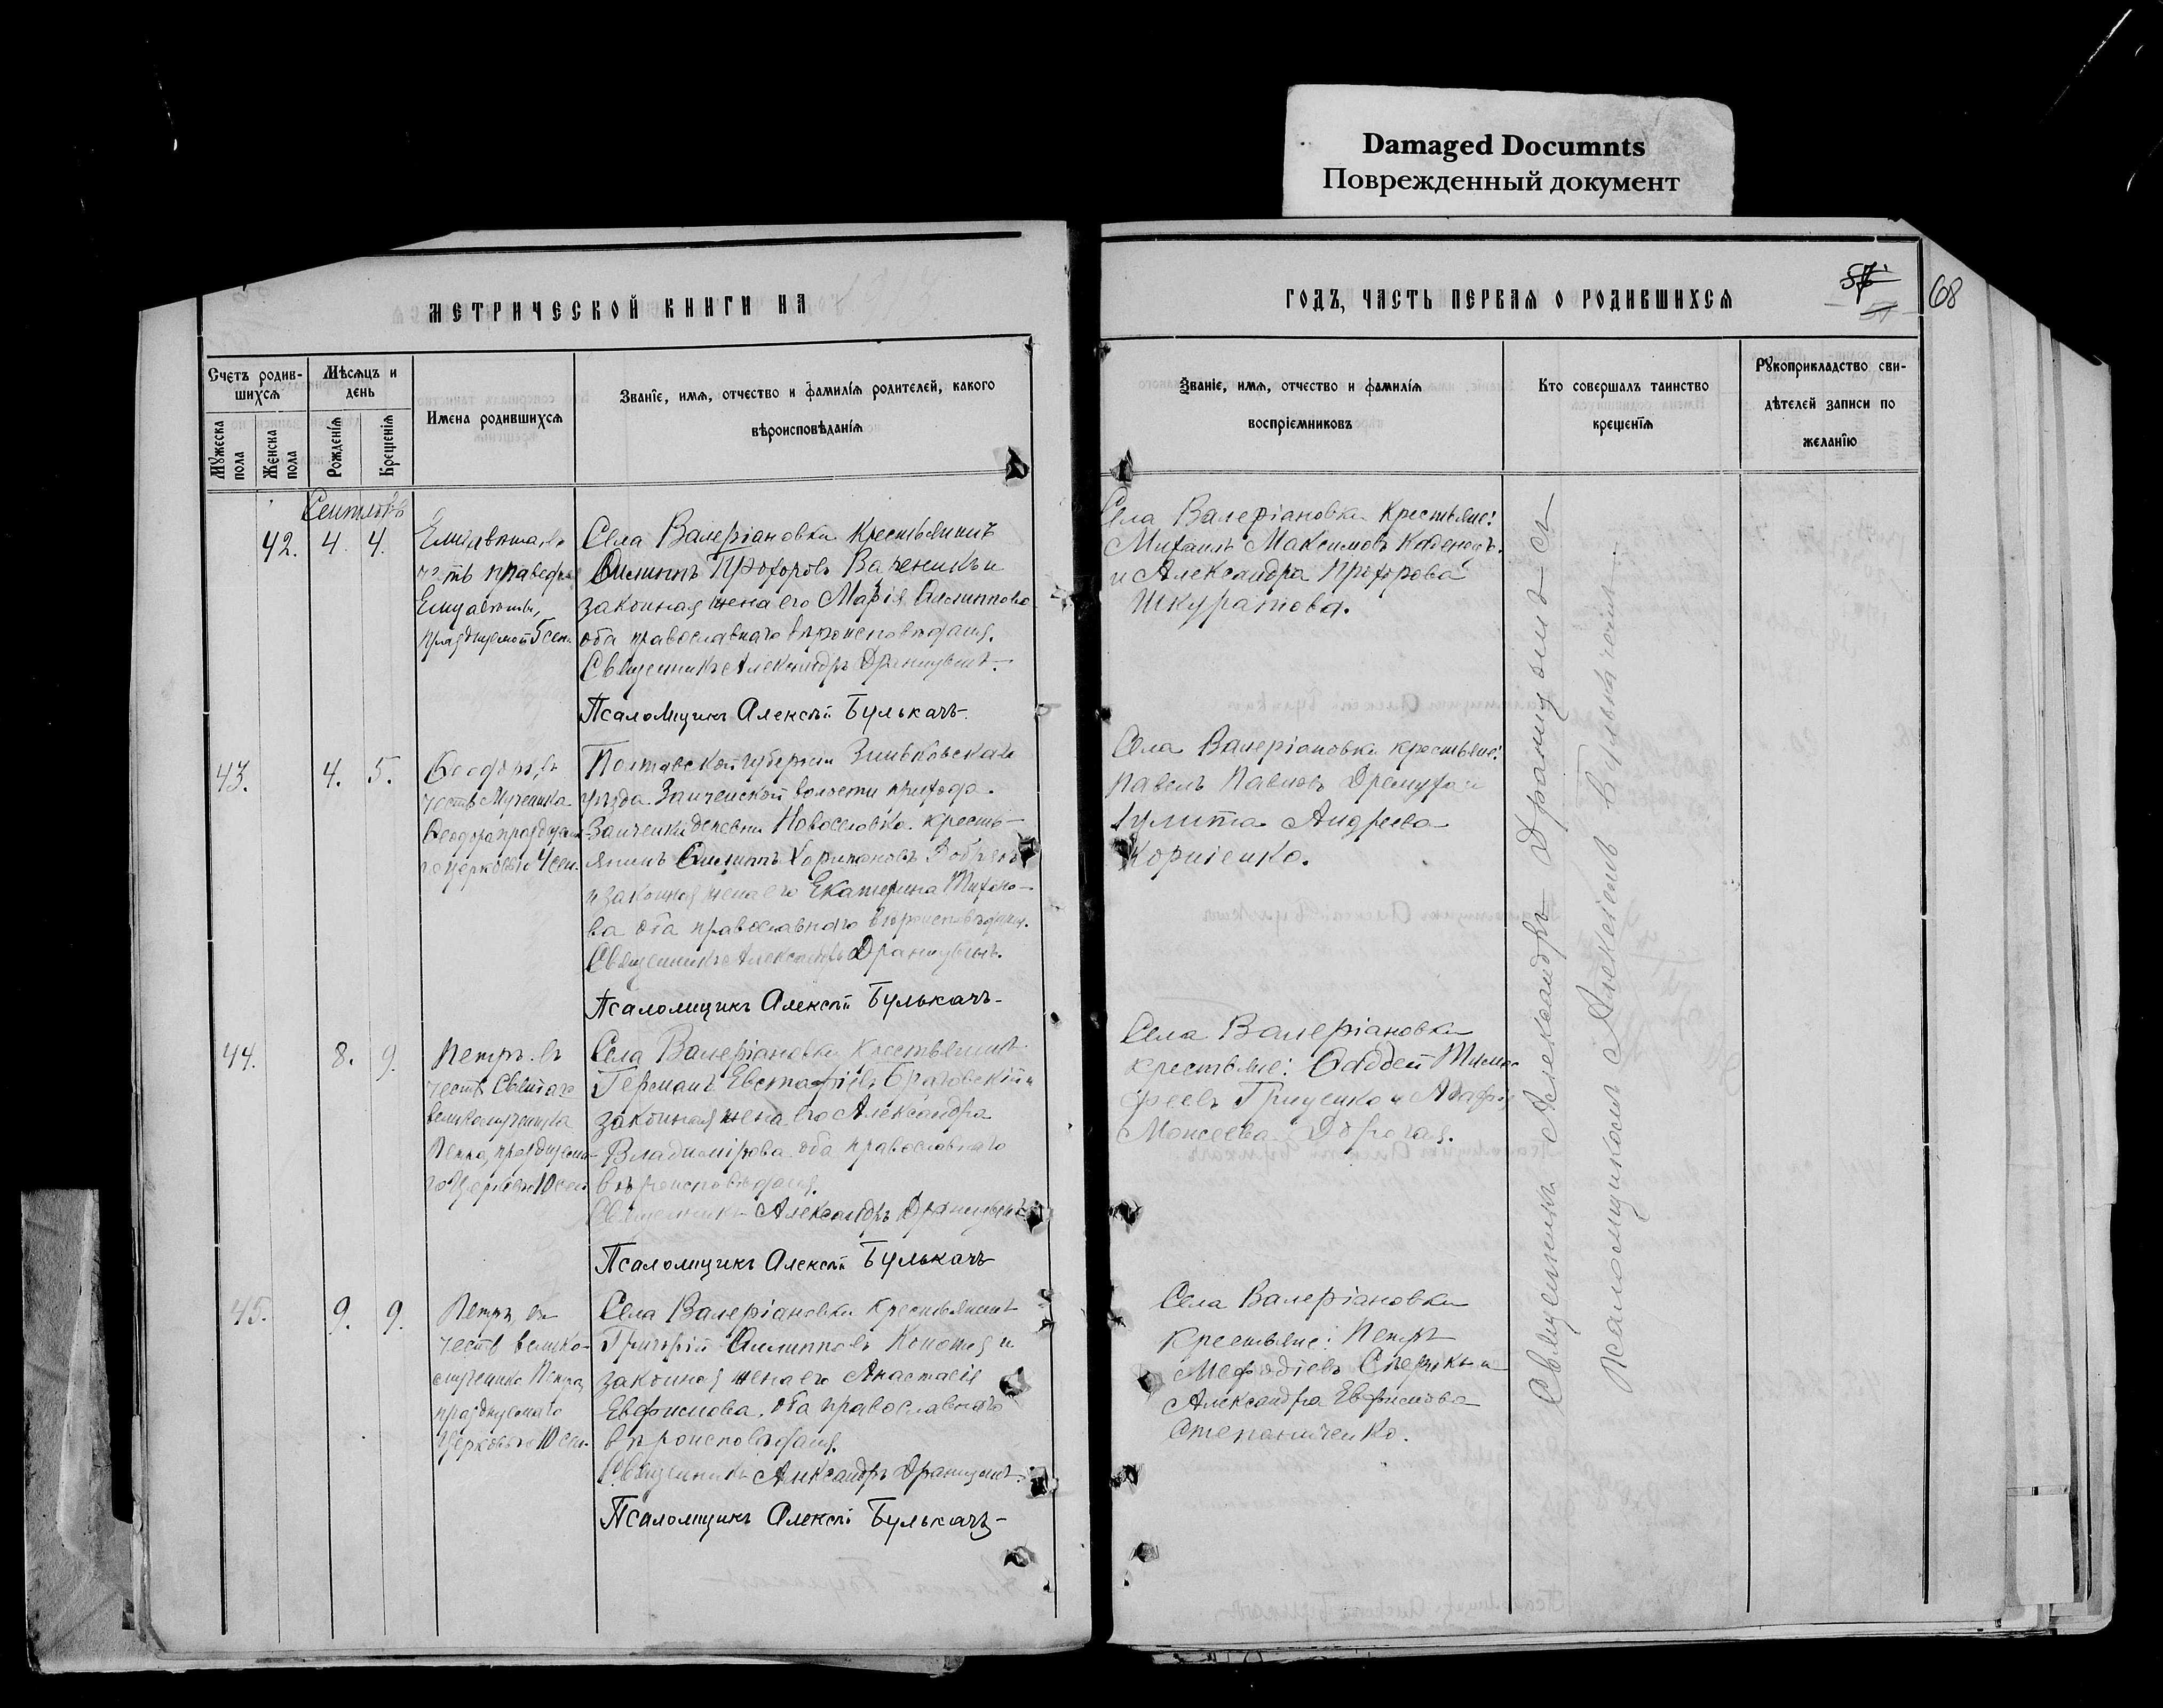 Damaged Documnts
Поврежденный документ
МЕТРИЧЕСКОЙ КНИГИ НА
ГОДЪ, ЧАСТЬ ПЕРВАЯ О РОДИВШИХСЯ
57
68
Счетъ родив-
шихся
Мужеска
пола
Женска
пола
Мѣсяцъ и
день
Рожденія
Крещенія
Имена родившихся
Званіе, имя, отчество и фамилія родителей, какого
вѣроисповѣданія
Званіе, имя, отчество и фамилія
воспріемниковъ
Кто совершалъ таинство
крещенія
Рукоприкладство сви-
дѣтелей записи по
желанію
Сентябрь
42. 4. 4.
Елисавета, въ
честь праведной
Елисаветы,
празднуемой 5 сен.
Села Валеріановки крестьянинъ
Филиппъ Прохоровъ Вареникъ и
законная жена его Марія Филиппова
оба православнаго вѣроисповѣданія.
Священникъ Александръ
Псаломщикъ Алексѣй Булькачъ
Села Валеріановки крестьяне:
Михаилъ Максимовъ
и Александра Прохорова
Шкуратова.
43. 4. 5.
Ѳеодоръ, въ
честь Мученика
Ѳеодора празднуемо-
го церковью 4 сен.
Полтавской губерніи Зиньковскаго
уѣзда волости прихода
деревни Новоселовка кресть-
янинъ Филиппъ Харитоновъ
и законная жена его Екатерина Тихоно-
ва оба православнаго вѣроисповѣданія.
Священникъ Александръ
Псаломщикъ Алексѣй Булькачъ
Села Валеріановки крестьяне:
Павелъ Павловъ и
Іулитта Андреева
Корніенко.
44. 8. 9.
Петръ, въ
честь Святаго
великомученика
Петра, празднуемо-
го Церковью 10 сен.
Села Валеріановки крестьянинъ
Германъ Евстафіевъ и
законная жена его Александра
Владимірова оба православнаго
вѣроисповѣданія.
Священникъ Александръ
Псаломщикъ Алексѣй Булькачъ
Села Валеріановки
крестьяне: Ѳаддей Тимо-
феевъ Гриценко и Агафія
Моисеева
45. 9. 9.
Петръ, въ
честь велико-
мученика Петра,
празднуемаго
Церковью 10 сен.
Села Валеріановки крестьянинъ
Григорій Филипповъ и
законная жена его Анастасія
Евфимова. оба православнаго
вѣроисповѣданія.
Священникъ Александръ
Псаломщикъ Алексѣй Булькачъ
Села Валеріановки
крестьяне: Петръ
Мефодіевъ и
Александра Евфимова
Степаниченко.
Священникъ Александръ съ
Псаломщикомъ Алексіемъ